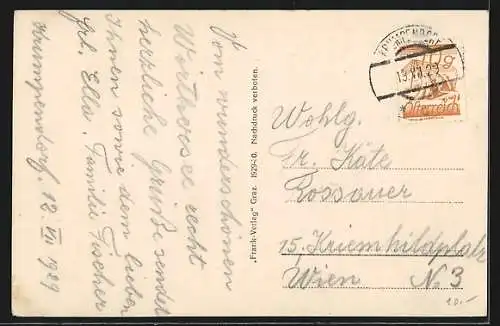 Vom wunderschönen
Wörthersee recht
herzliche Grüße sendet
Ihnen sowie dem lieben
Frl. Ella. Familie Fischer
Krumpendorf, 12. VII 1929
„Frank-Verlag“ Graz. 1929 Nachdruck verboten.
KRUMPENDORF
13.VII.29
Österreich
Wohlg.
Fr. Käte
Rossauer
15. Kriemhildplatz
Wien N. 3
10.-